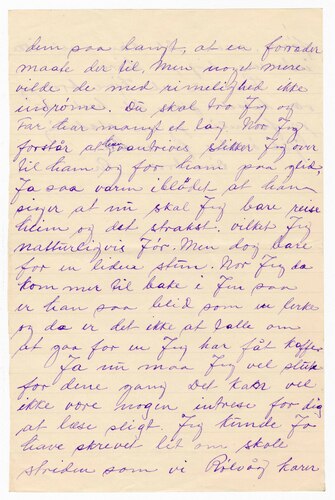 dem saa langt, at en forrader
maate der til. Men noget mere
vilde de med rimelighed ikke
indrøme. Du skal tro Jeg og
Far har mangt et tag. Nor Jeg
forstår at han entreves stikker Jeg over
til ham og for ham paa glid,
Ja saa varm iblodet at han
siger at nu skal Jeg bare reise
heim og det strakst. vilket Jeg
natturligvis Jør. Men dog bare
for en liden stun. Nor Jeg da
kommer til bake i Jen saa
er han saa blid som en lerke
og da er det ikke at talle om
at gaa for en Jeg har fåt kaffe.
Ja nu maa Jeg vel slute
for dene gang Det kan vel
ikke vore nogen intrese for dig
at læse sligt. Jeg kunde Jo
have skrevet lit om skole
striden som vi Rölvåg karer